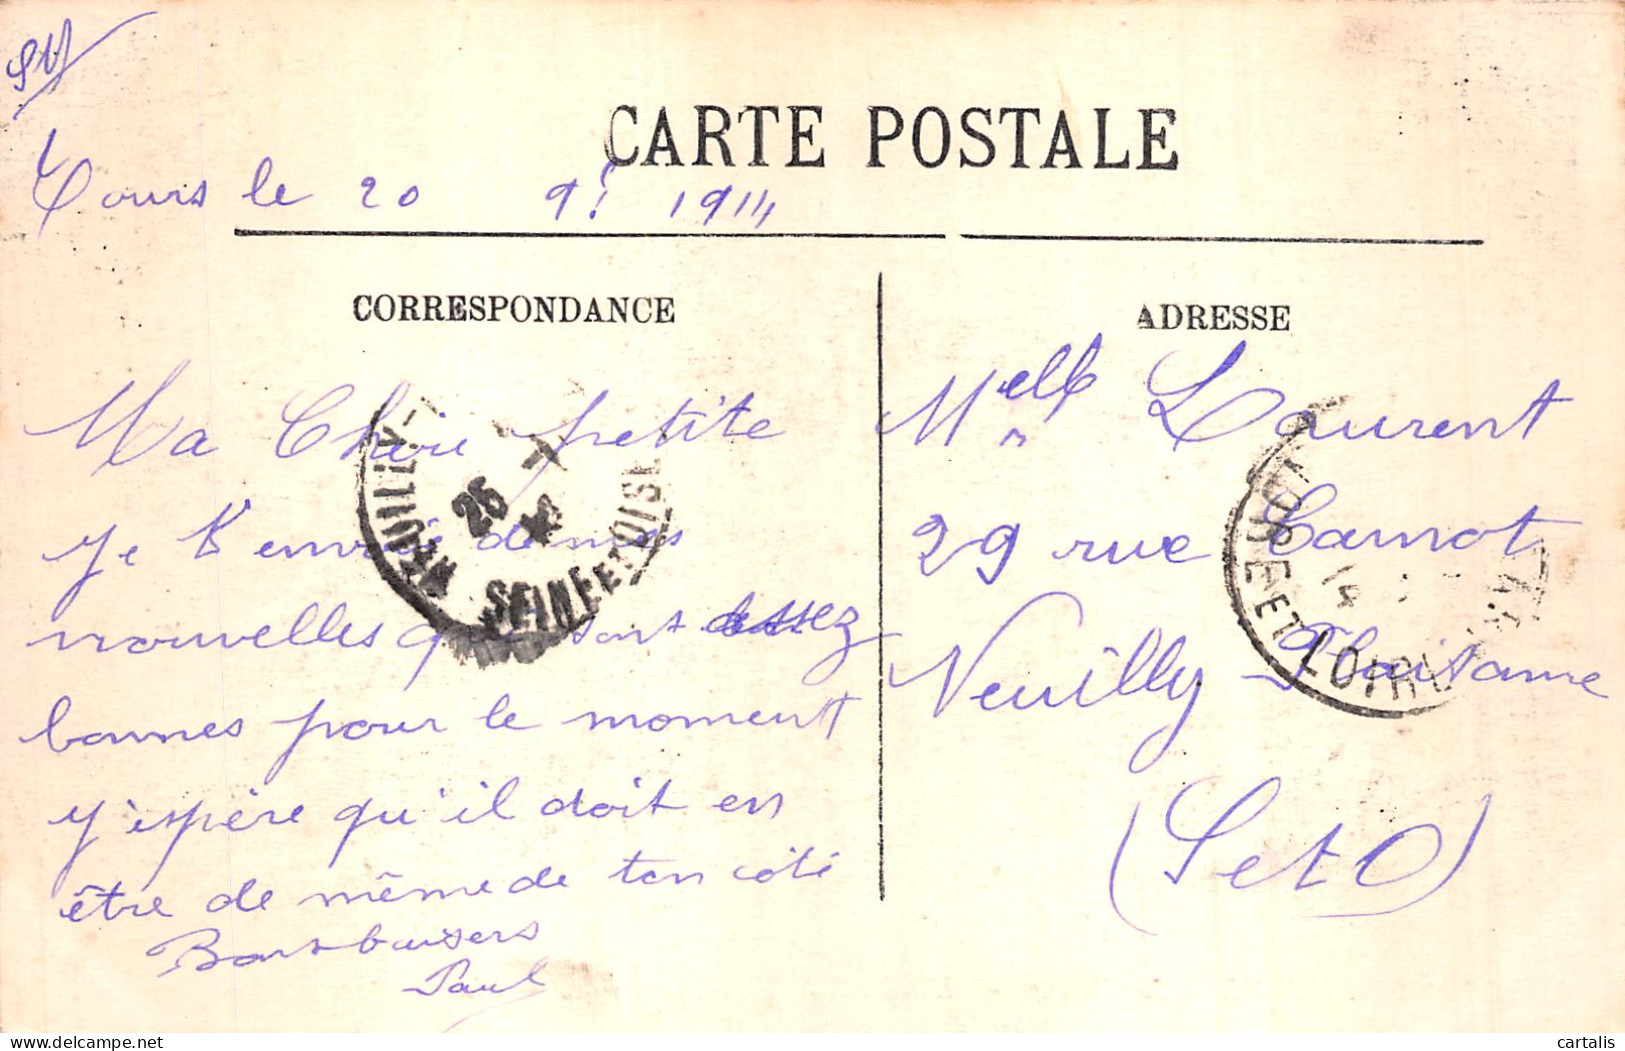 SM
CARTE POSTALE
Tours le 20 9! 1914
CORRESPONDANCE
Ma Chère petite
Je t'envoie de mes
nouvelles qui sont assez
bonnes pour le moment
J'espère qu'il doit en
être de même de ton côté
Bons baisers
Paul
ADRESSE
Melle Laurent
29 rue Carnot
Neuilly Plaisance
(S et O)
NEUILLY-
25 -7
SEINE ET OISE
INDRE ET LOIRE
delcampe.net
cartalis